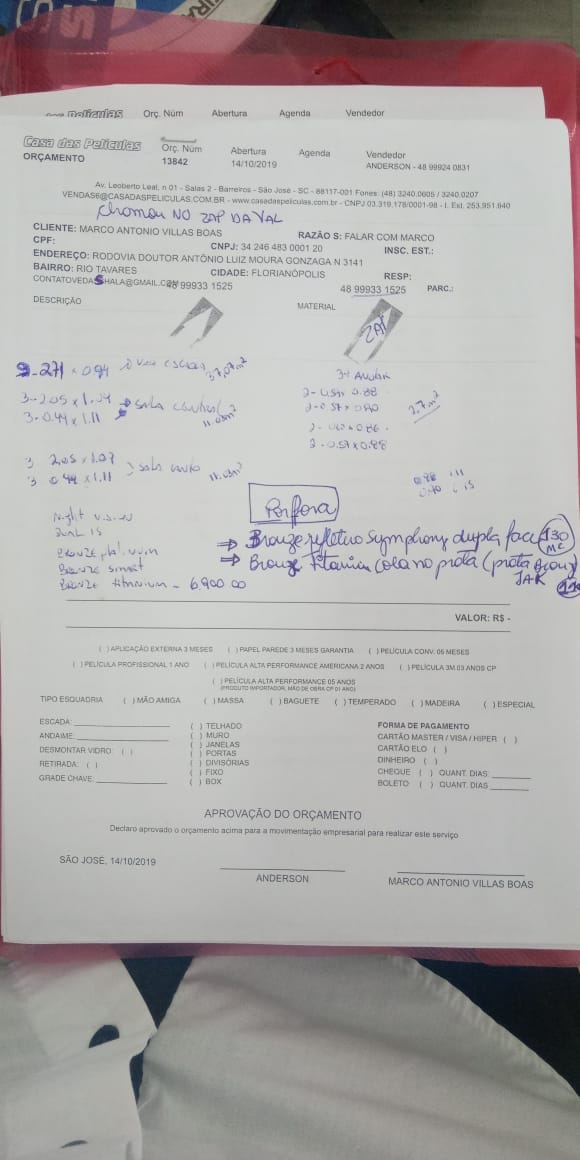 Orç. Núm Abertura Agenda Vendedor
Casa das Películas
ORÇAMENTO
Orç. Núm
13842
Abertura
14/10/2019
Agenda
Vendedor
ANDERSON - 48 99924 0831
Av. Leoberto Leal, n 01 - Salas 2 - Barreiros - São José - SC - 88117-001 Fones: (48) 3240.0605 / 3240.0207
VENDAS6@CASADASPELICULAS.COM.BR - www.casadaspeliculas.com.br - CNPJ 03.319.178/0001-98 - I. Est. 253.951.640
chamou NO ZAP DA VAL
CLIENTE: MARCO ANTONIO VILLAS BOAS RAZÃO S: FALAR COM MARCO
CPF: CNPJ: 34 246 483 0001 20 INSC. EST.:
ENDEREÇO: RODOVIA DOUTOR ANTÔNIO LUIZ MOURA GONZAGA N 3141
BAIRRO: RIO TAVARES CIDADE: FLORIANÓPOLIS RESP:
48 99933 1525 48 99933 1525 PARC.:
DESCRIÇÃO MATERIAL
ZAP
271 x 094
3- 205 x 1.
3- 0.44 x 1.11
3 205 x 1.07
3 044 x 1.11
2- 0.57 x 0.88
2.7 m²
Night vision
DUAL 15
Bronze smart
Bronze titanium - 6900 00
⇒ Bronze refletivo symphony dupla face 130
⇒ Bronze
VALOR: R$ -
( ) APLICAÇÃO EXTERNA 3 MESES ( ) PAPEL PAREDE 3 MESES GARANTIA ( ) PELÍCULA CONV. 06 MESES
( ) PELÍCULA PROFISSIONAL 1 ANO ( ) PELÍCULA ALTA PERFORMANCE AMERICANA 2 ANOS ( ) PELÍCULA 3M 03 ANOS CP
( ) PELÍCULA ALTA PERFORMANCE 05 ANOS
(PRODUTO IMPORTADOR, MÃO DE OBRA CP 01 ANO)
TIPO ESQUADRIA ( ) MÃO AMIGA ( ) MASSA ( ) BAGUETE ( ) TEMPERADO ( ) MADEIRA ( ) ESPECIAL
ESCADA:
ANDAIME:
DESMONTAR VIDRO: ( )
RETIRADA: ( )
GRADE CHAVE:
( ) TELHADO
( ) MURO
( ) JANELAS
( ) PORTAS
( ) DIVISÓRIAS
( ) FIXO
( ) BOX
FORMA DE PAGAMENTO
CARTÃO MASTER / VISA / HIPER ( )
CARTÃO ELO ( )
DINHEIRO ( )
CHEQUE ( ) QUANT. DIAS:
BOLETO ( ) QUANT. DIAS
APROVAÇÃO DO ORÇAMENTO
Declaro aprovado o orçamento acima para a movimentação empresarial para realizar este serviço
SÃO JOSÉ, 14/10/2019
ANDERSON
MARCO ANTONIO VILLAS BOAS